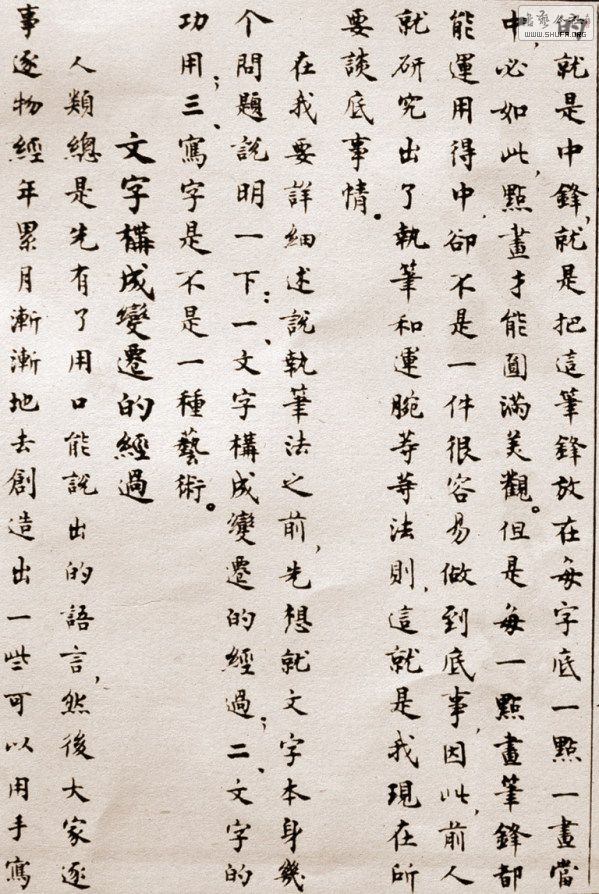 的,就是中鋒,就是把這筆鋒放在每字底一點一畫當
中,必如此,點畫才能圓滿美觀。但是每一點畫筆鋒都
能運用得中,卻不是一件很容易做到底事,因此,前人
就研究出了執筆和運腕等等法則,這就是我現在所
要談底事情。
在我要詳細述說執筆法之前,先想就文字本身幾
个問題說明一下:一、文字構成變遷的經過;二、文字的
功用;三、寫字是不是一種藝術。
文字構成變遷的經過
人類總是先有了用口能說出的語言,然後大家逐
事逐物經年累月漸漸地去創造出一些可以用手寫